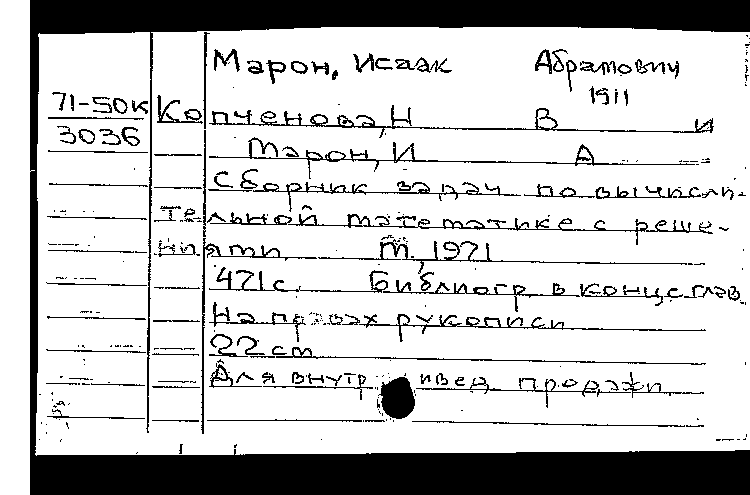 Марон, Исаак Абрамович
1911
71-50к Копченова, Н В и
3036 Марон, И А =
Сборник задач по вычисли-
тельной математике с реше-
ниями. М, 1971
471 с. Библиогр в конце глав
На правах рукописи
22 cm
Для внутр ивед продажи